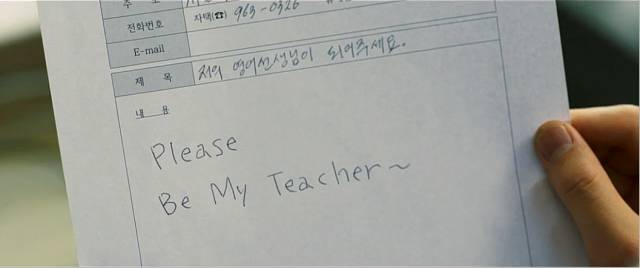 주 소
전화번호 자택(☎) 963-0326
E-mail
제 목 저의 영어선생님이 되어주세요.
내 용
Please
Be My Teacher~